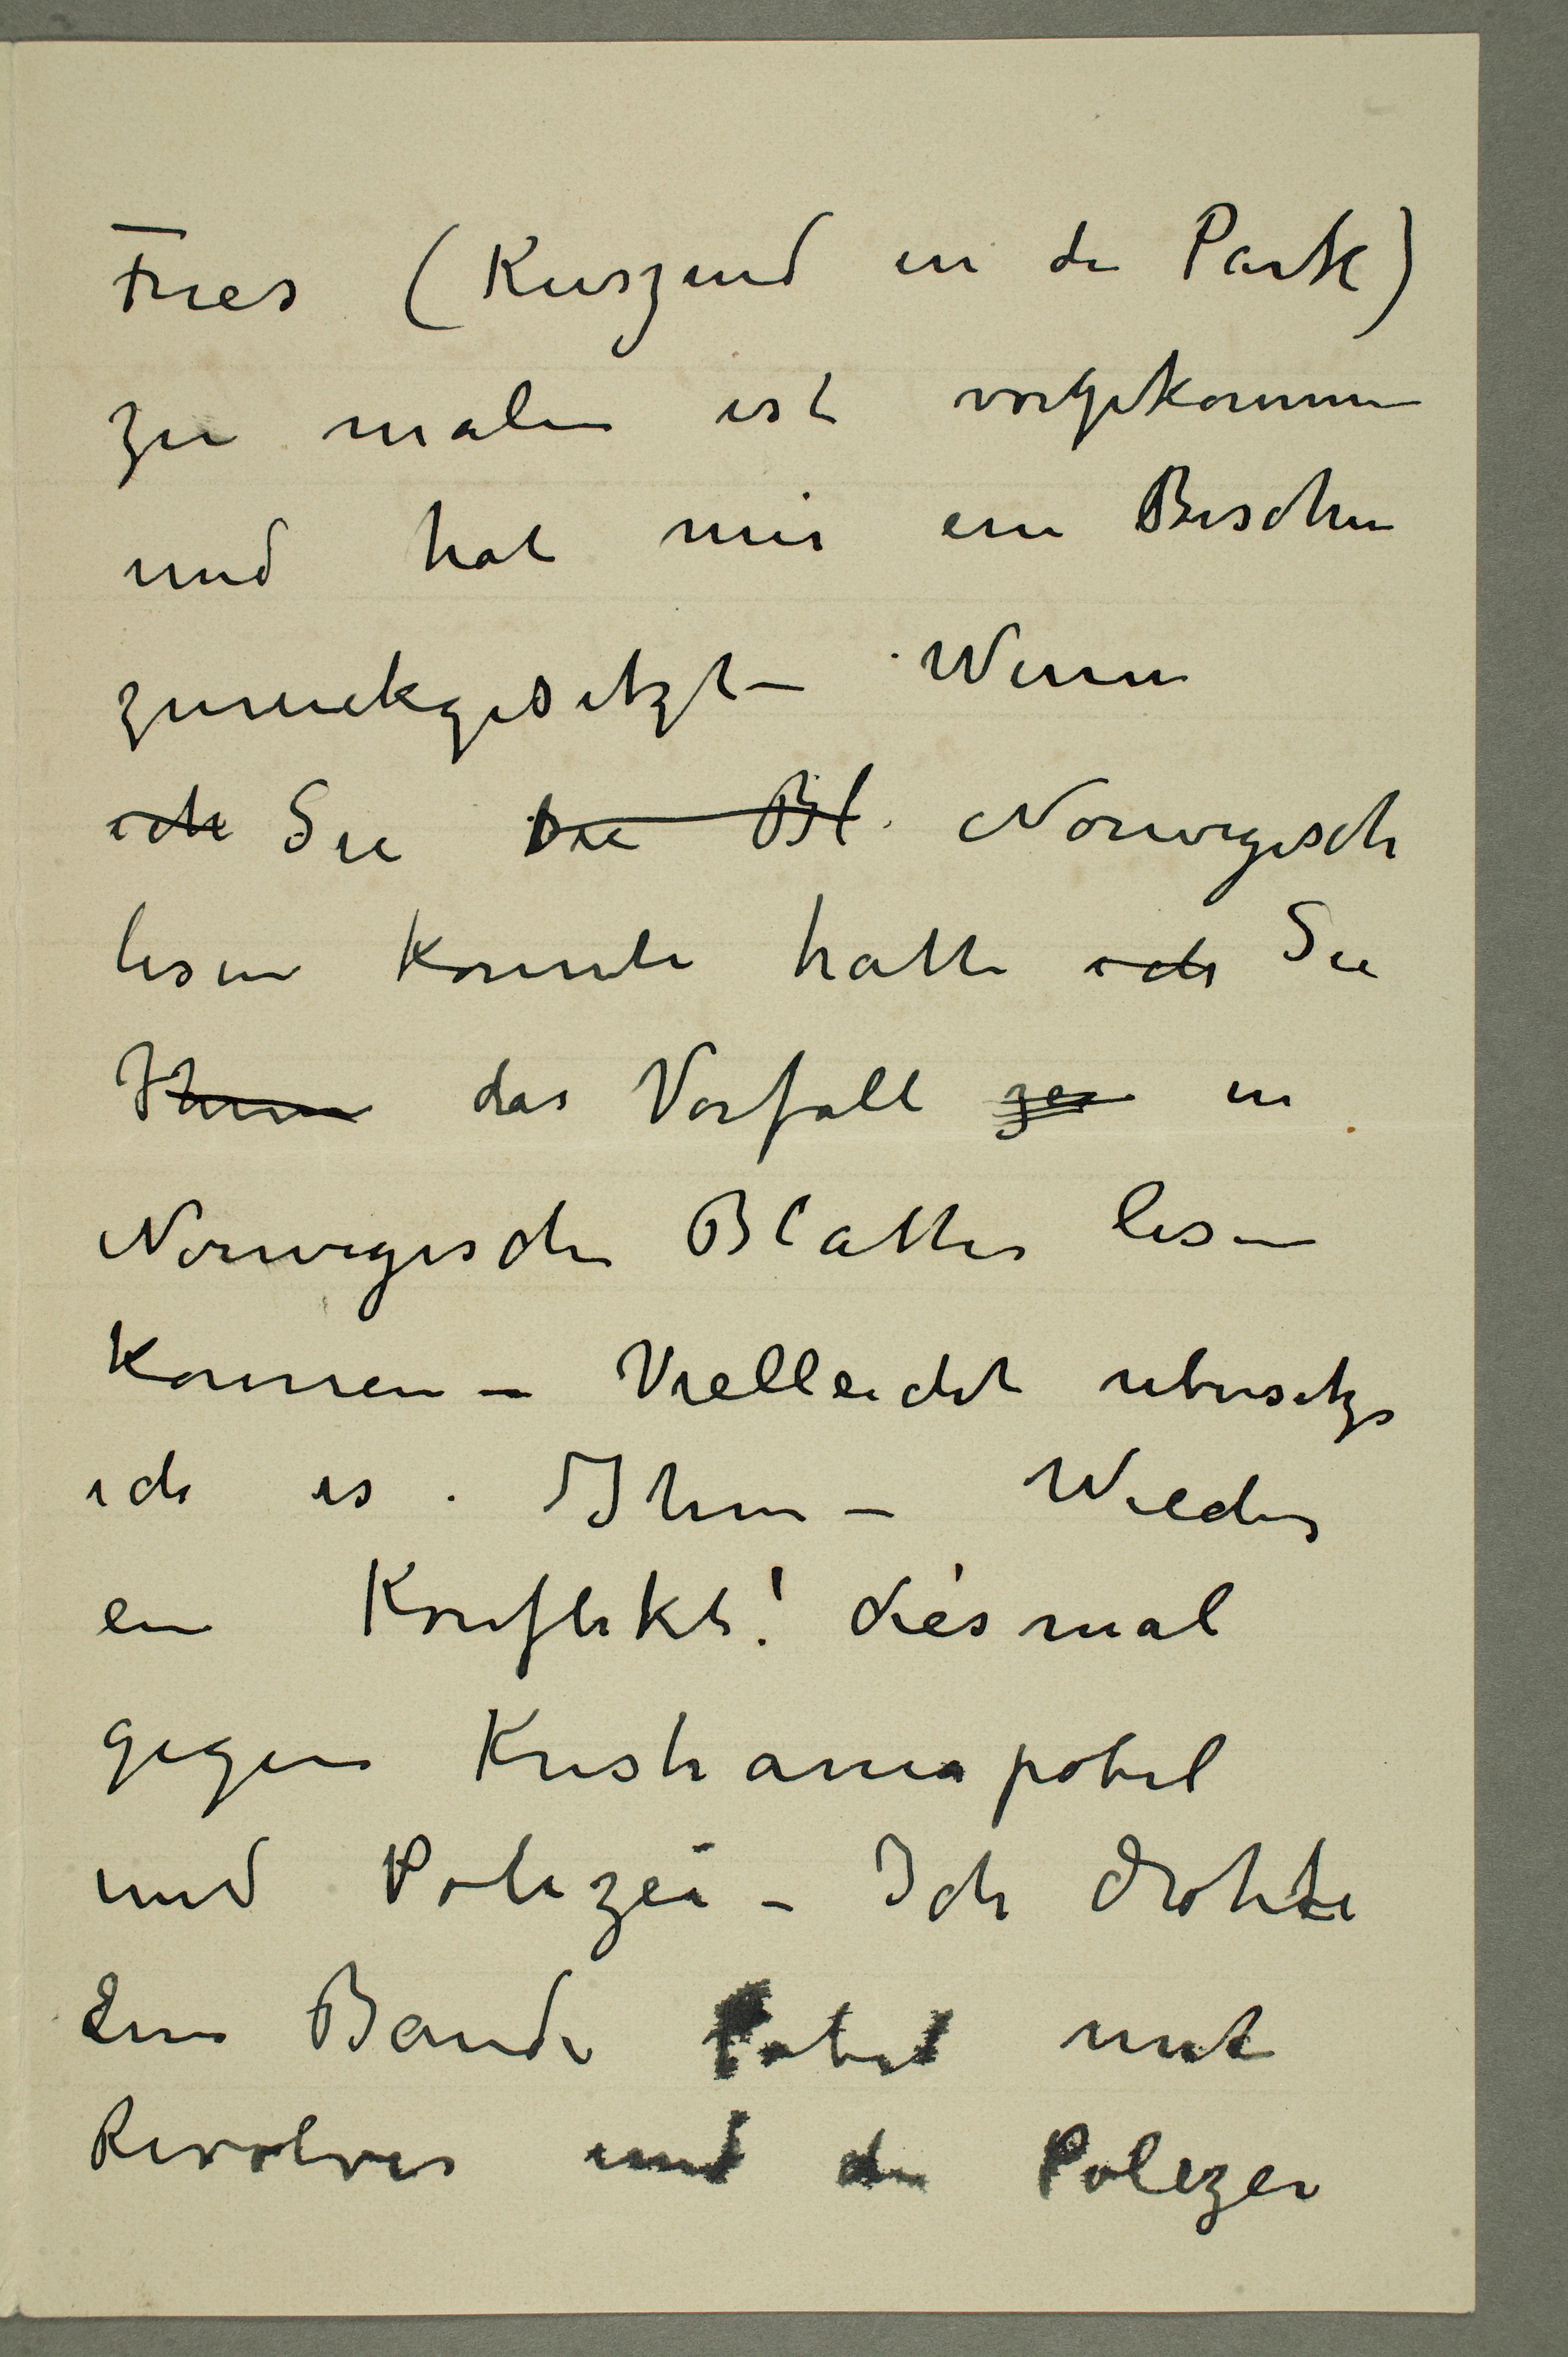 Fries (Kuszend in de Park)
zu malen ist vorgekommen
und hat mir ein Bischen
zuruckgesetzt – Wenn
ich Sie die Bl. Norwegisch
lesen konnte hatte ich Sie
Ihnen das Vorfall zei in
Norwegische Blatter lesen
konnen – Vielleicht ubersetze
ich es. Ihnen – Wieder
ein Konflikt! diesmal
gegen Kristianiapobel
und Polizei – Ich drohte
eine Bande Pobel mit
Revolver und die Polizei